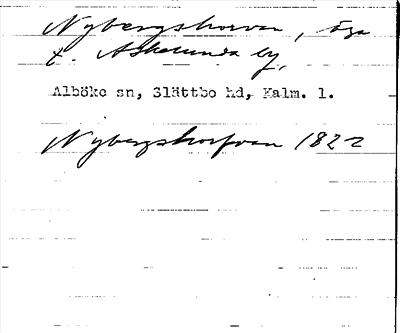 Nybergshorvan, äga
t. Askelunda by,
Alböke sn, Slättbo hd, Kalm. l.
Nybergshorfvan 1822